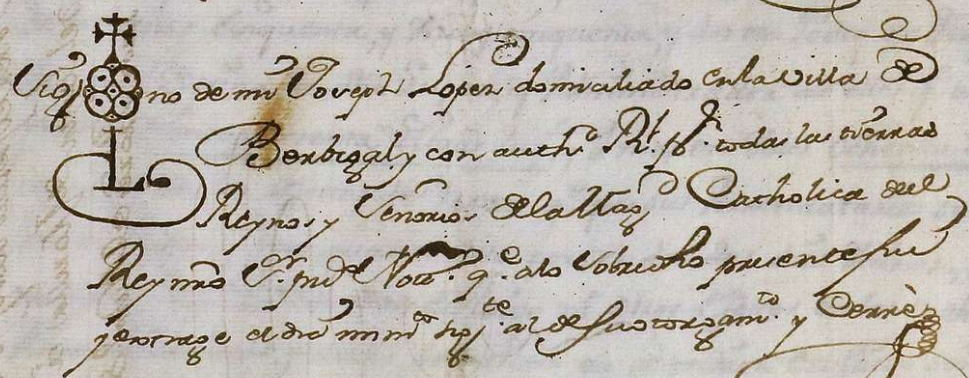 Sig no de mi Joseph Lopez domiciliado en la Villa de
Berbegal y con auth.o R.l p.r todas las tierras
Reynos y Señorios de la Mag.d Catholica del
Rey nro S.r pu.co Nott.o q.e a lo sobredho presente fui
y extrage el dia mi.mo sig.te al de su otorgam.to y Cerrè